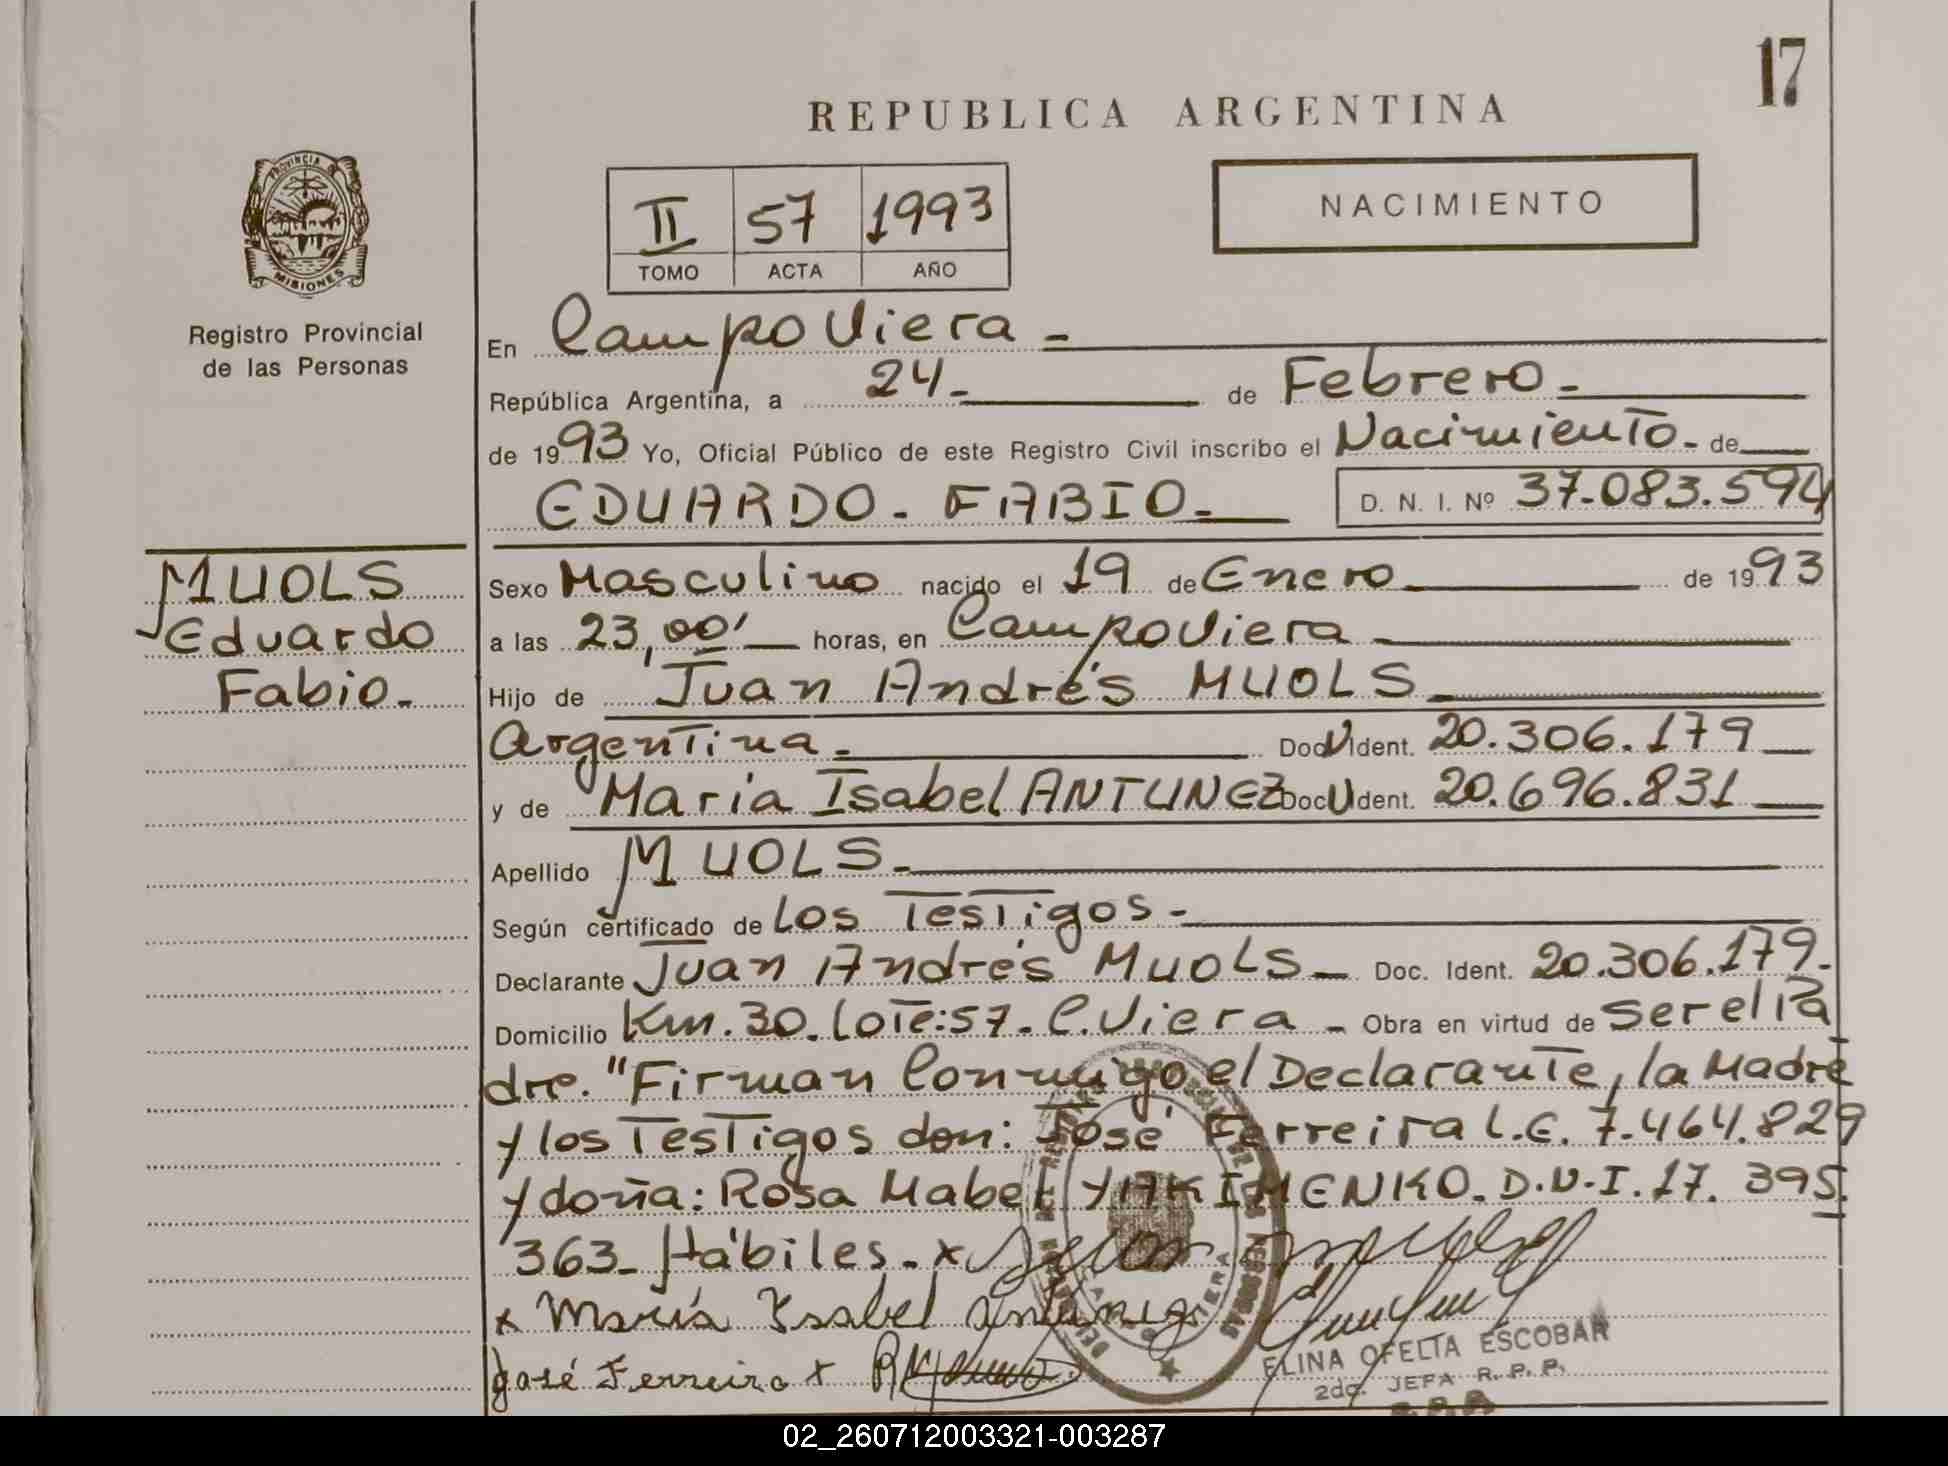 17
REPUBLICA ARGENTINA
PROVINCIA
MISIONES
Registro Provincial
de las Personas
II 57 1993
TOMO ACTA AÑO
NACIMIENTO
En Campo Viera -
República Argentina, a 24 - de Febrero -
de 1993 Yo, Oficial Público de este Registro Civil inscribo el Nacimiento - de
EDUARDO - FABIO - D. N. I. Nº 37.083.594
MUOLS
Eduardo
Fabio -
Sexo Masculino nacido el 19 de Enero de 1993
a las 23,00' horas, en Campo Viera -
Hijo de Juan Andrés MUOLS -
Argentina - Doc U Ident. 20.306.179
y de María Isabel ANTUNEZ Doc U Ident. 20.696.831
Apellido MUOLS -
Según certificado de los Testigos -
Declarante Juan Andrés MUOLS - Doc. Ident. 20.306.179 -
Domicilio Km. 30. Lote: 57 - C. Viera - Obra en virtud de ser el Pa
dre. "Firman Conmigo el Declarante, la Madre
y los Testigos don: José Ferreira L.E. 7.464.829
y doña: Rosa Mabel YAKIMENKO. D.N.I. 17. 395.
363 - Hábiles - x
x María Ysabel Antunez
José Ferreira x
ELINA OFELIA ESCOBAR
2da. JEFA R. P. P.
02_260712003321-003287